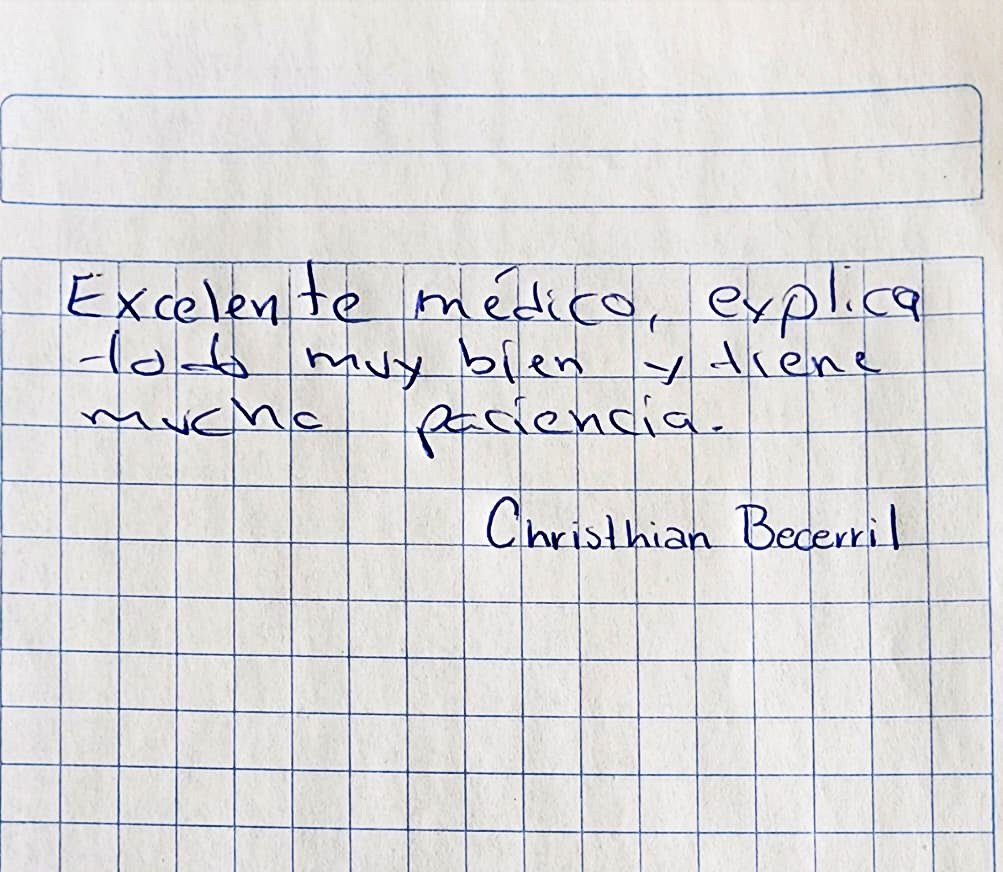 Excelente médico, explica
todo muy bien y tiene
mucha paciencia.
Christhian Becerril